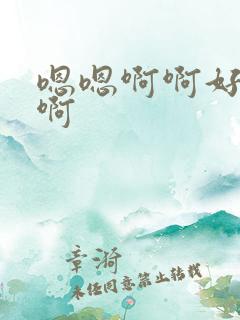 嗯嗯啊啊好
啊
章漪
未经同意禁止转载